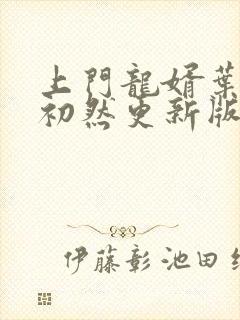 上門龍婿葉
初然更新版
伊藤彰池田